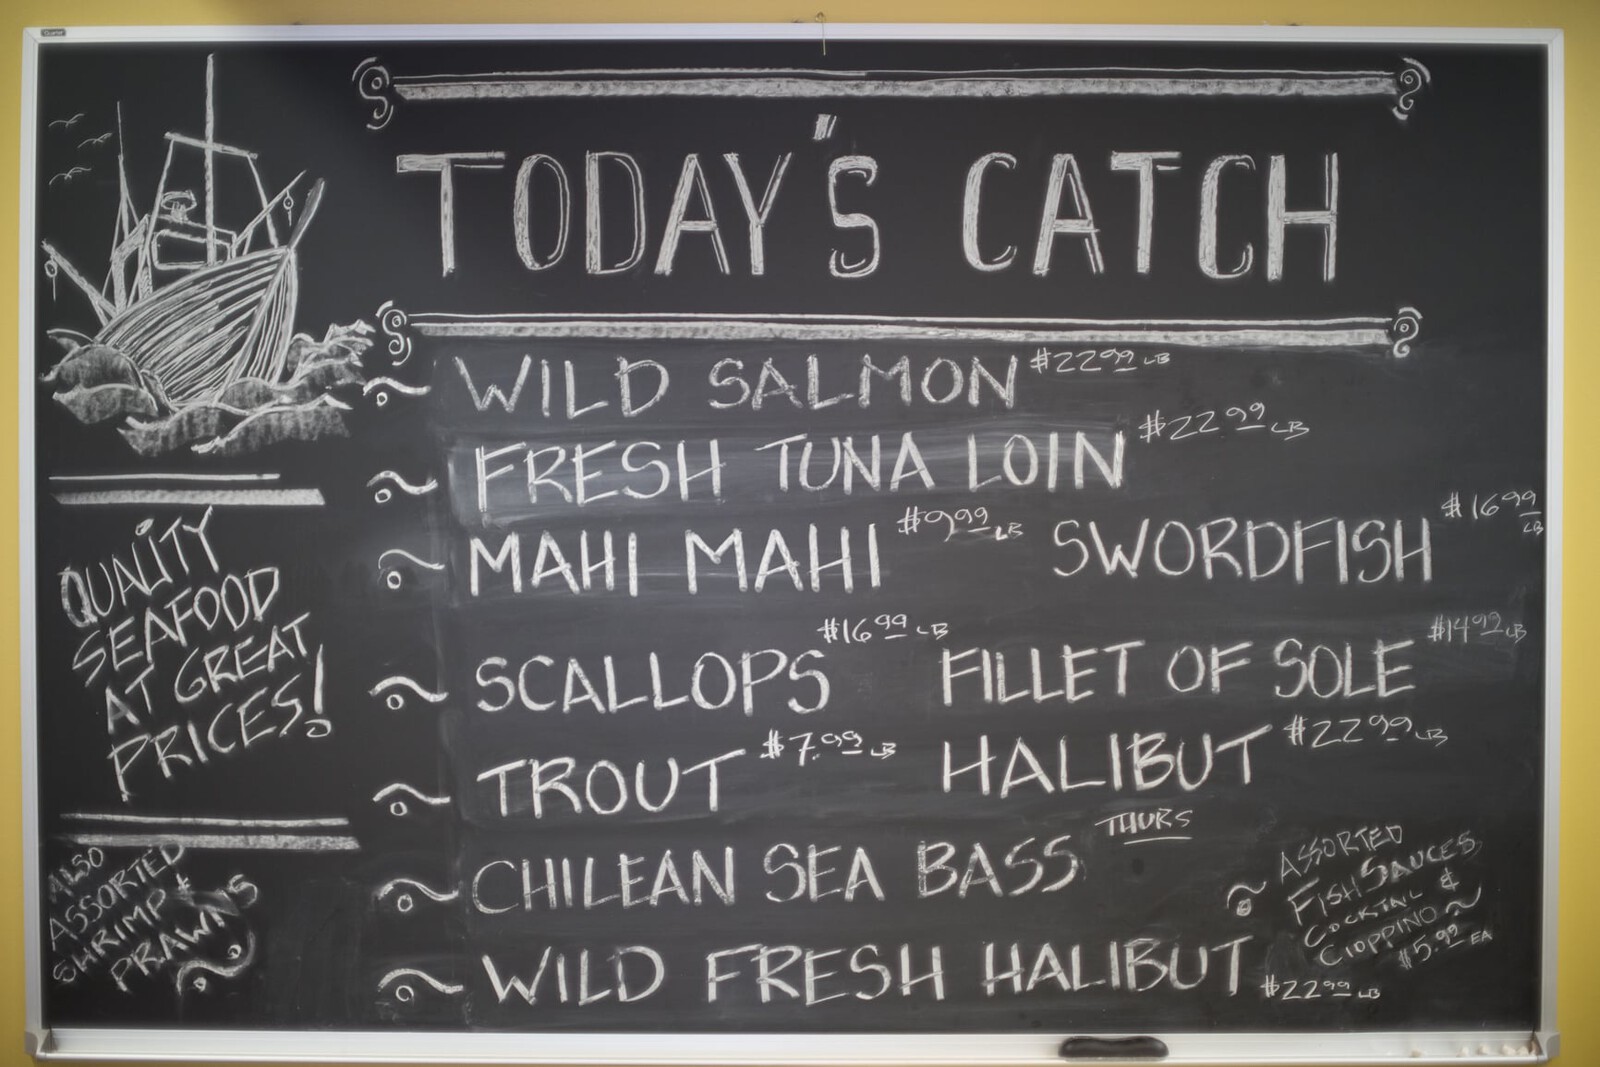 TODAY'S CATCH
WILD SALMON $22.99 LB
FRESH TUNA LOIN $22.99 LB
MAHI MAHI $9.99 LB SWORDFISH $16.99 LB
SCALLOPS $16.99 LB FILLET OF SOLE $14.99 LB
TROUT $7.99 LB HALIBUT $22.99 LB
CHILEAN SEA BASS THURS
WILD FRESH HALIBUT $22.99 LB
QUALITY
SEAFOOD
AT GREAT
PRICES!
ALSO
ASSORTED
SHRIMP &
PRAWNS
ASSORTED
FISH SAUCES
COCKTAIL &
CIOPPINO
$5.99 EA